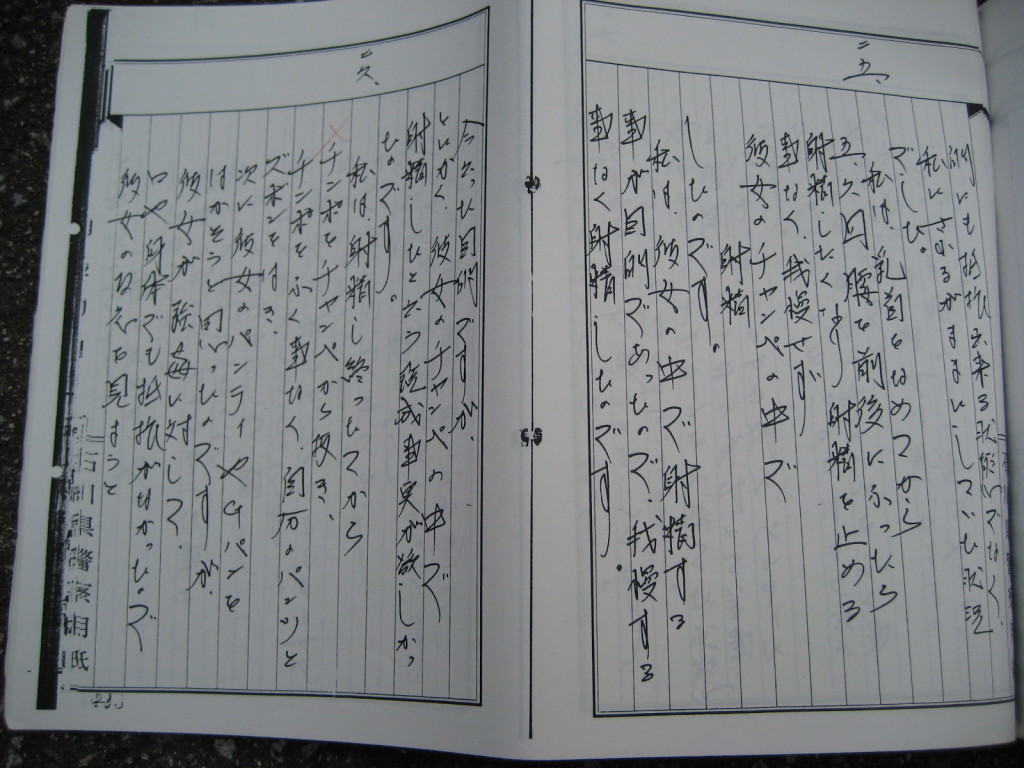 二五
何にも抵抗出来る状態でなく、
私にされるがままにしていた状況
でした。
私は、乳首をなめてから
五、六回腰を前後にふったら
射精したくなり射精を止める
事なく、我慢せず
彼女のチャンペの中で
射精
したのです。
私は、彼女の中で射精する
事が目的であったので、我慢する
事なく射精したのです。
二六
目的ですが、
とにかく、彼女のチャンペの中で
射精したと言う既成事実が欲しかっ
たのです。
私は、射精し終ってから
チンポをチャンペから抜き、
チンポをふく事なく、自分のパンツと
ズボンをはき、
次に彼女のパンティやGパンを
はかそうと思ったのですが、
彼女が強姦に対して、
口や身体でも抵抗がなかったので
彼女の
見ようと
石川県警察用紙